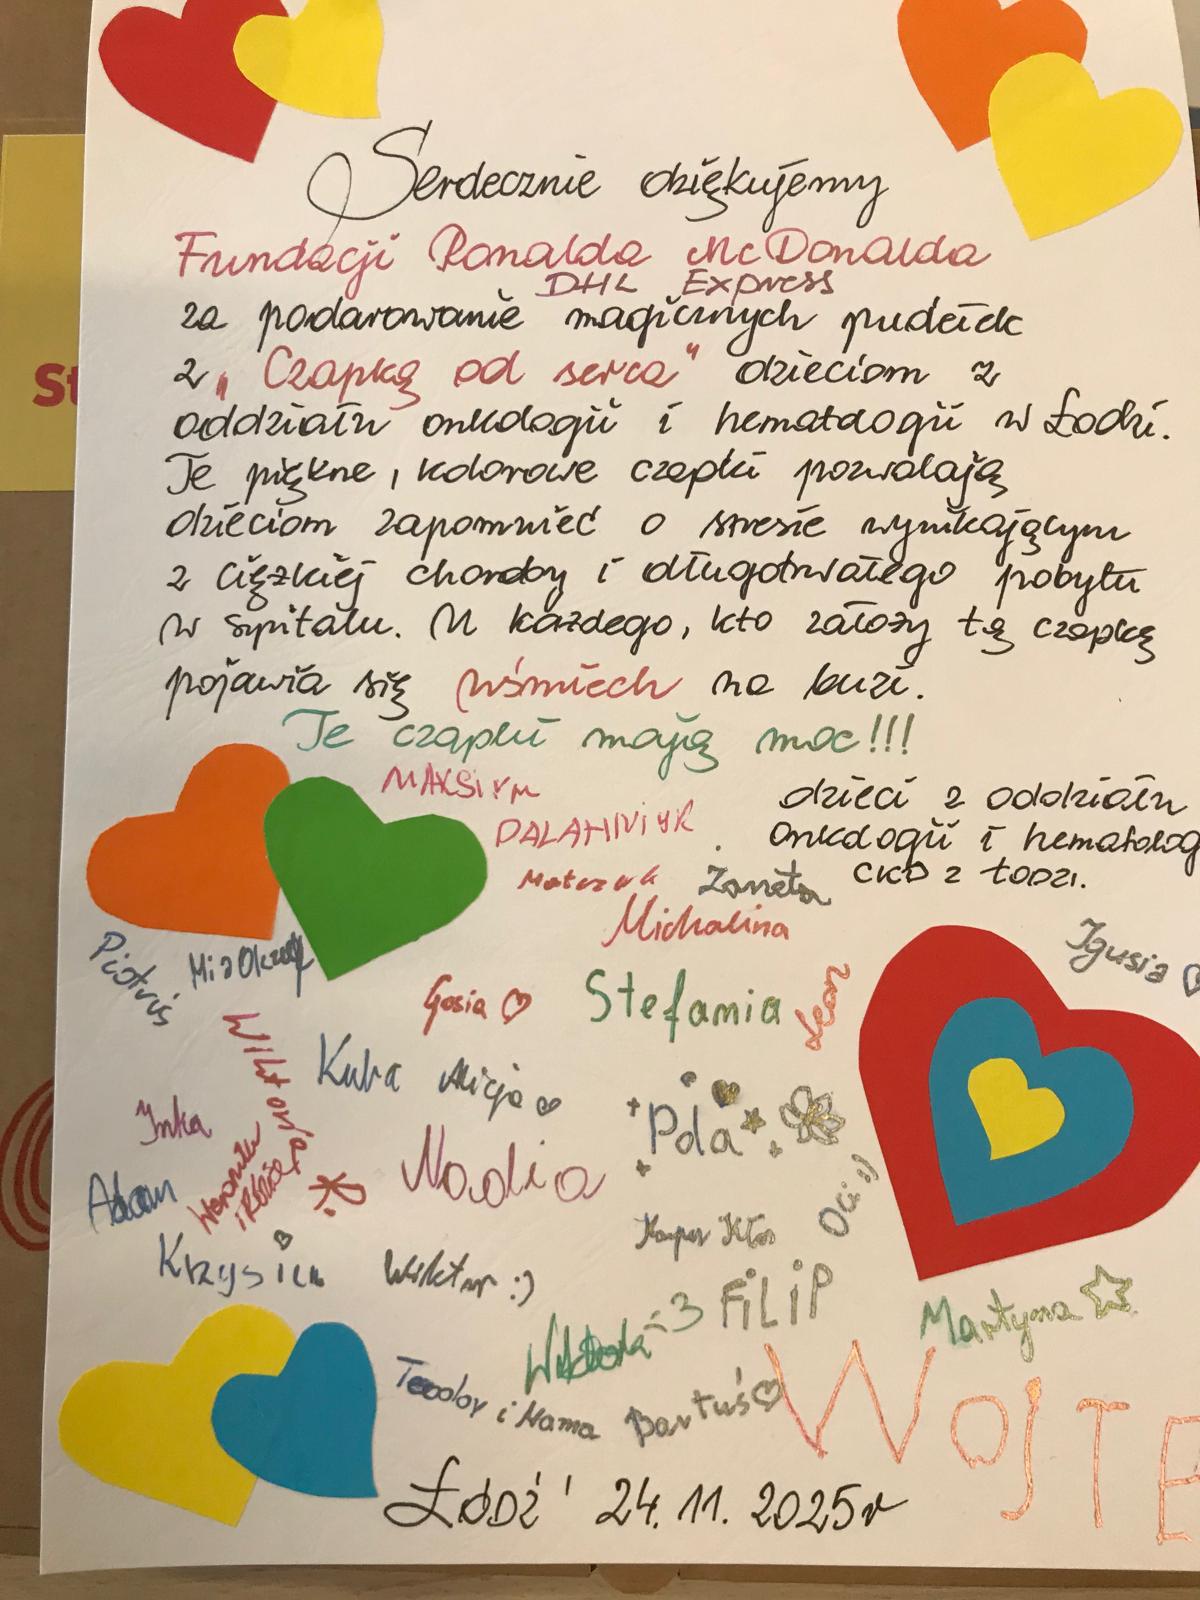 St
Serdecznie dziękujemy
Fundacji Ronalda McDonalda
DHL Express
za podarowanie magicznych pudełek
z „Czapką od serca" dzieciom z
oddziału onkologii i hematologii w Łodzi.
Te piękne, kolorowe czapki pozwalają
dzieciom zapomnieć o stresie wynikającym
z ciężkiej choroby i długotrwałego pobytu
w szpitalu. U każdego, kto założy tę czapkę
pojawia się uśmiech na buzi.
Te czapki mają moc!!!
dzieci z oddziału
onkologii i hematolog
CKD z ŁODZI.
MAKSiYM
Żaneta
Michalina
Piotruś
Mia
Igusia
Gosia
Stefania
Leon
Wiktoria
Kuba
Alicja
Inka
Pola
Nadia
Adam
Weronika
Oli :)
Kacper Kłos
Krzysiu
Wiktor :)
FiLiP
Martyna
=3
Teodor i Mama
Bartuś
WOJTE
ŁÓDŹ 24.11.2025r